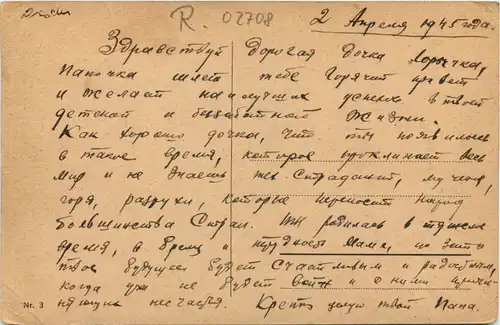 R. 02708
2 Апреля 1945 года.
Здравствуй Дорогая Дочка Лорочка,
Папочка шлет тебе Горячий привет
и желает наилучших успехов в твоей
детской и беззаботной Жизни.
Как хорошо дочка, что ты появилась
в такое время, которое проклинает весь
мир и не знаешь тех Страданий, мучения,
горя, разрухи, которые переносит народ
большинства Стран. ты родилась в тяжелое
время, в Грец и трудность Маме, но зато
твое будущее будет счастливым и радостным,
когда уж не будет войн и с ними
несчастья. Крепко целую твой Папа.
Nr. 3